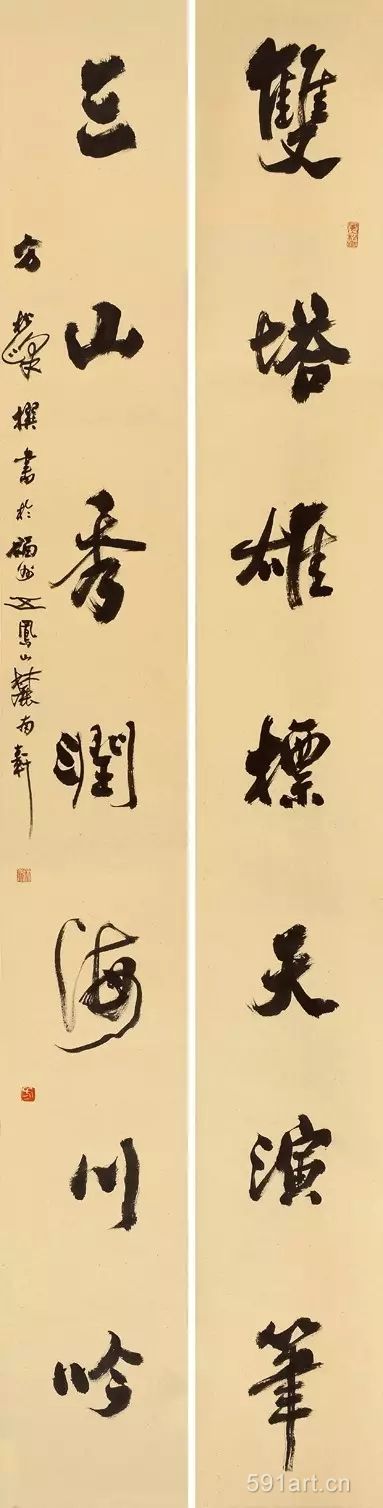 雙塔雄標天演筆
三山秀潤海川吟
方松峰撰書於福州五鳳山麓軒
591art.cn